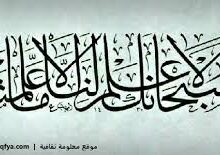 سبحانك لا علم لنا إلا ما علمتنا
موقع معلومة ثقافية | qfya.com